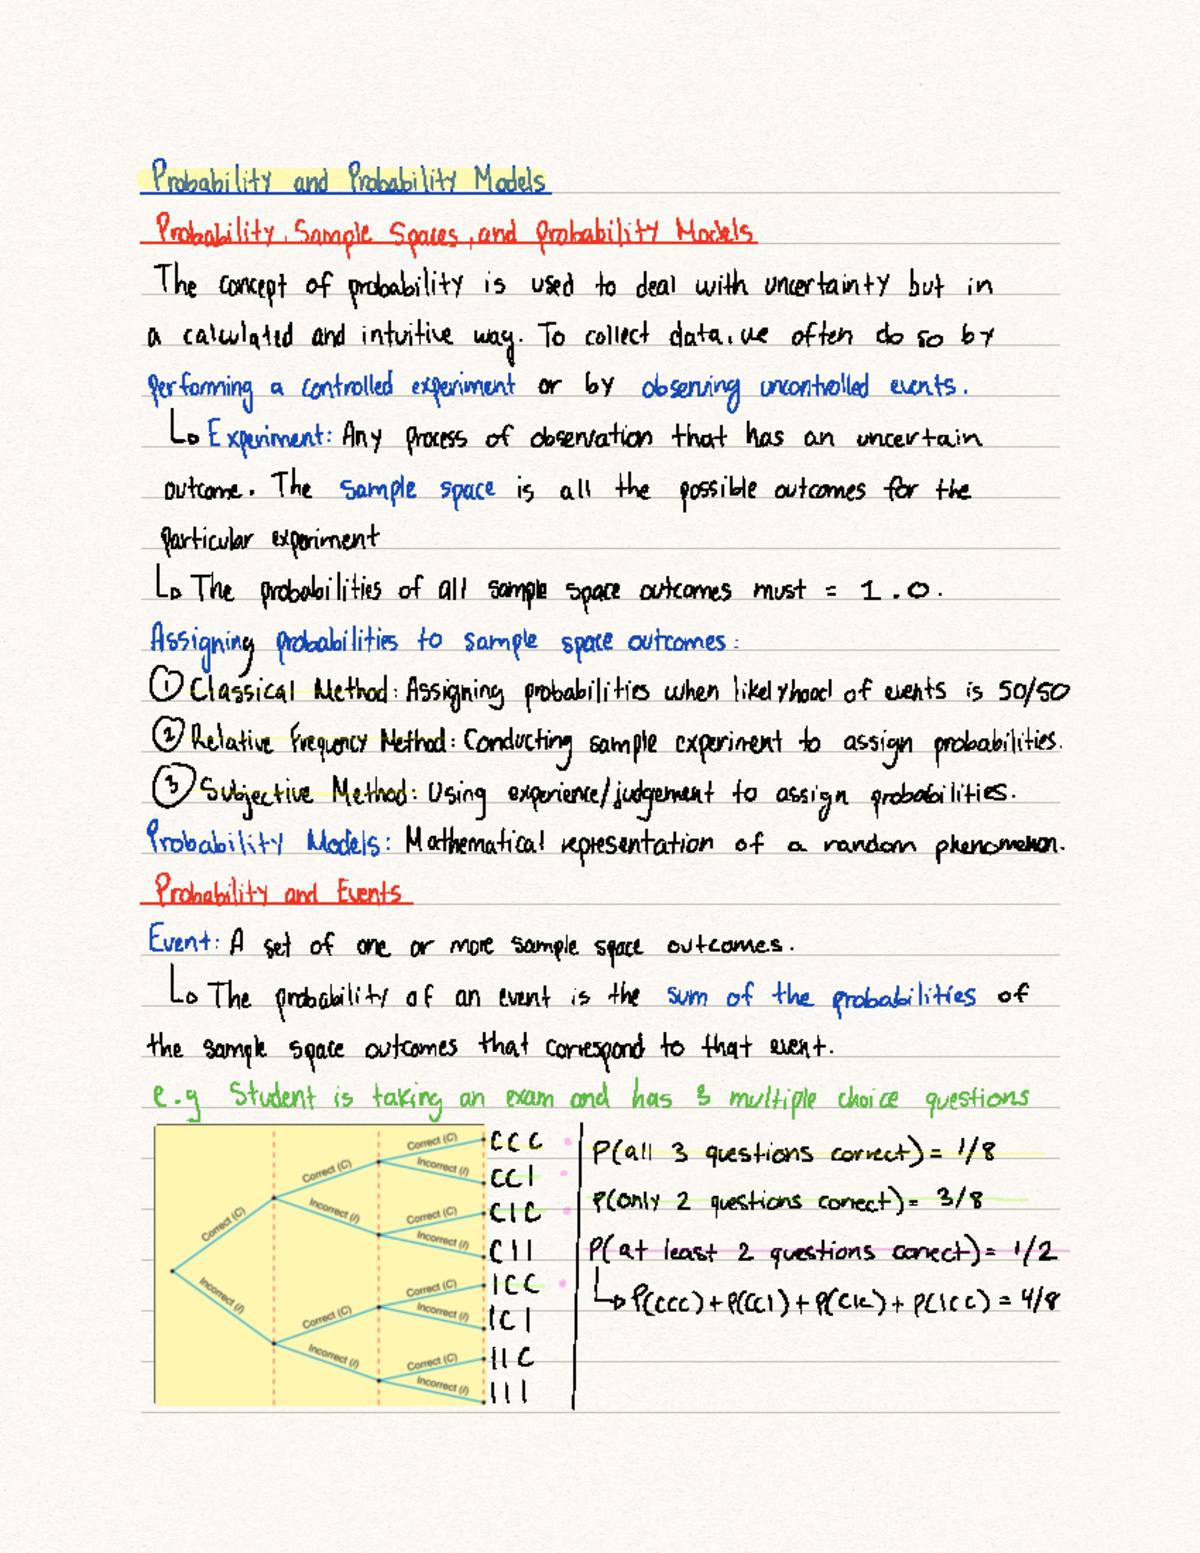 Probability and Probability Models
Probability, Sample Spaces, and Probability Models
The concept of probability is used to deal with uncertainty but in
a calculated and intuitive way. To collect data, we often do so by
performing a controlled experiment or by observing uncontrolled events.
↳ Experiment: Any process of observation that has an uncertain
outcome. The sample space is all the possible outcomes for the
particular experiment
↳ The probabilities of all sample space outcomes must = 1.0.
Assigning probabilities to sample space outcomes:
① Classical Method: Assigning probabilities when likelyhood of events is 50/50
② Relative Frequency Method: Conducting sample experiment to assign probabilities.
③ Subjective Method: Using experience/judgement to assign probabilities.
Probability Models: Mathematical representation of a random phenomenon.
Probability and Events
Event: A set of one or more sample space outcomes.
↳ The probability of an event is the sum of the probabilities of
the sample space outcomes that correspond to that event.
e.g Student is taking an exam and has 3 multiple choice questions
Correct (C)
Incorrect (I)
Correct (C)
Incorrect (I)
Correct (C)
Incorrect (I)
Correct (C)
Incorrect (I)
Correct (C)
Incorrect (I)
Correct (C)
Incorrect (I)
Correct (C)
Incorrect (I)
CCC
CCI
CIC
CII
ICC
ICI
IIC
III
P(all 3 questions correct) = 1/8
P(only 2 questions correct) = 3/8
P(at least 2 questions correct) = 1/2
↳ P(CCC) + P(CCI) + P(CIC) + P(ICC) = 4/8